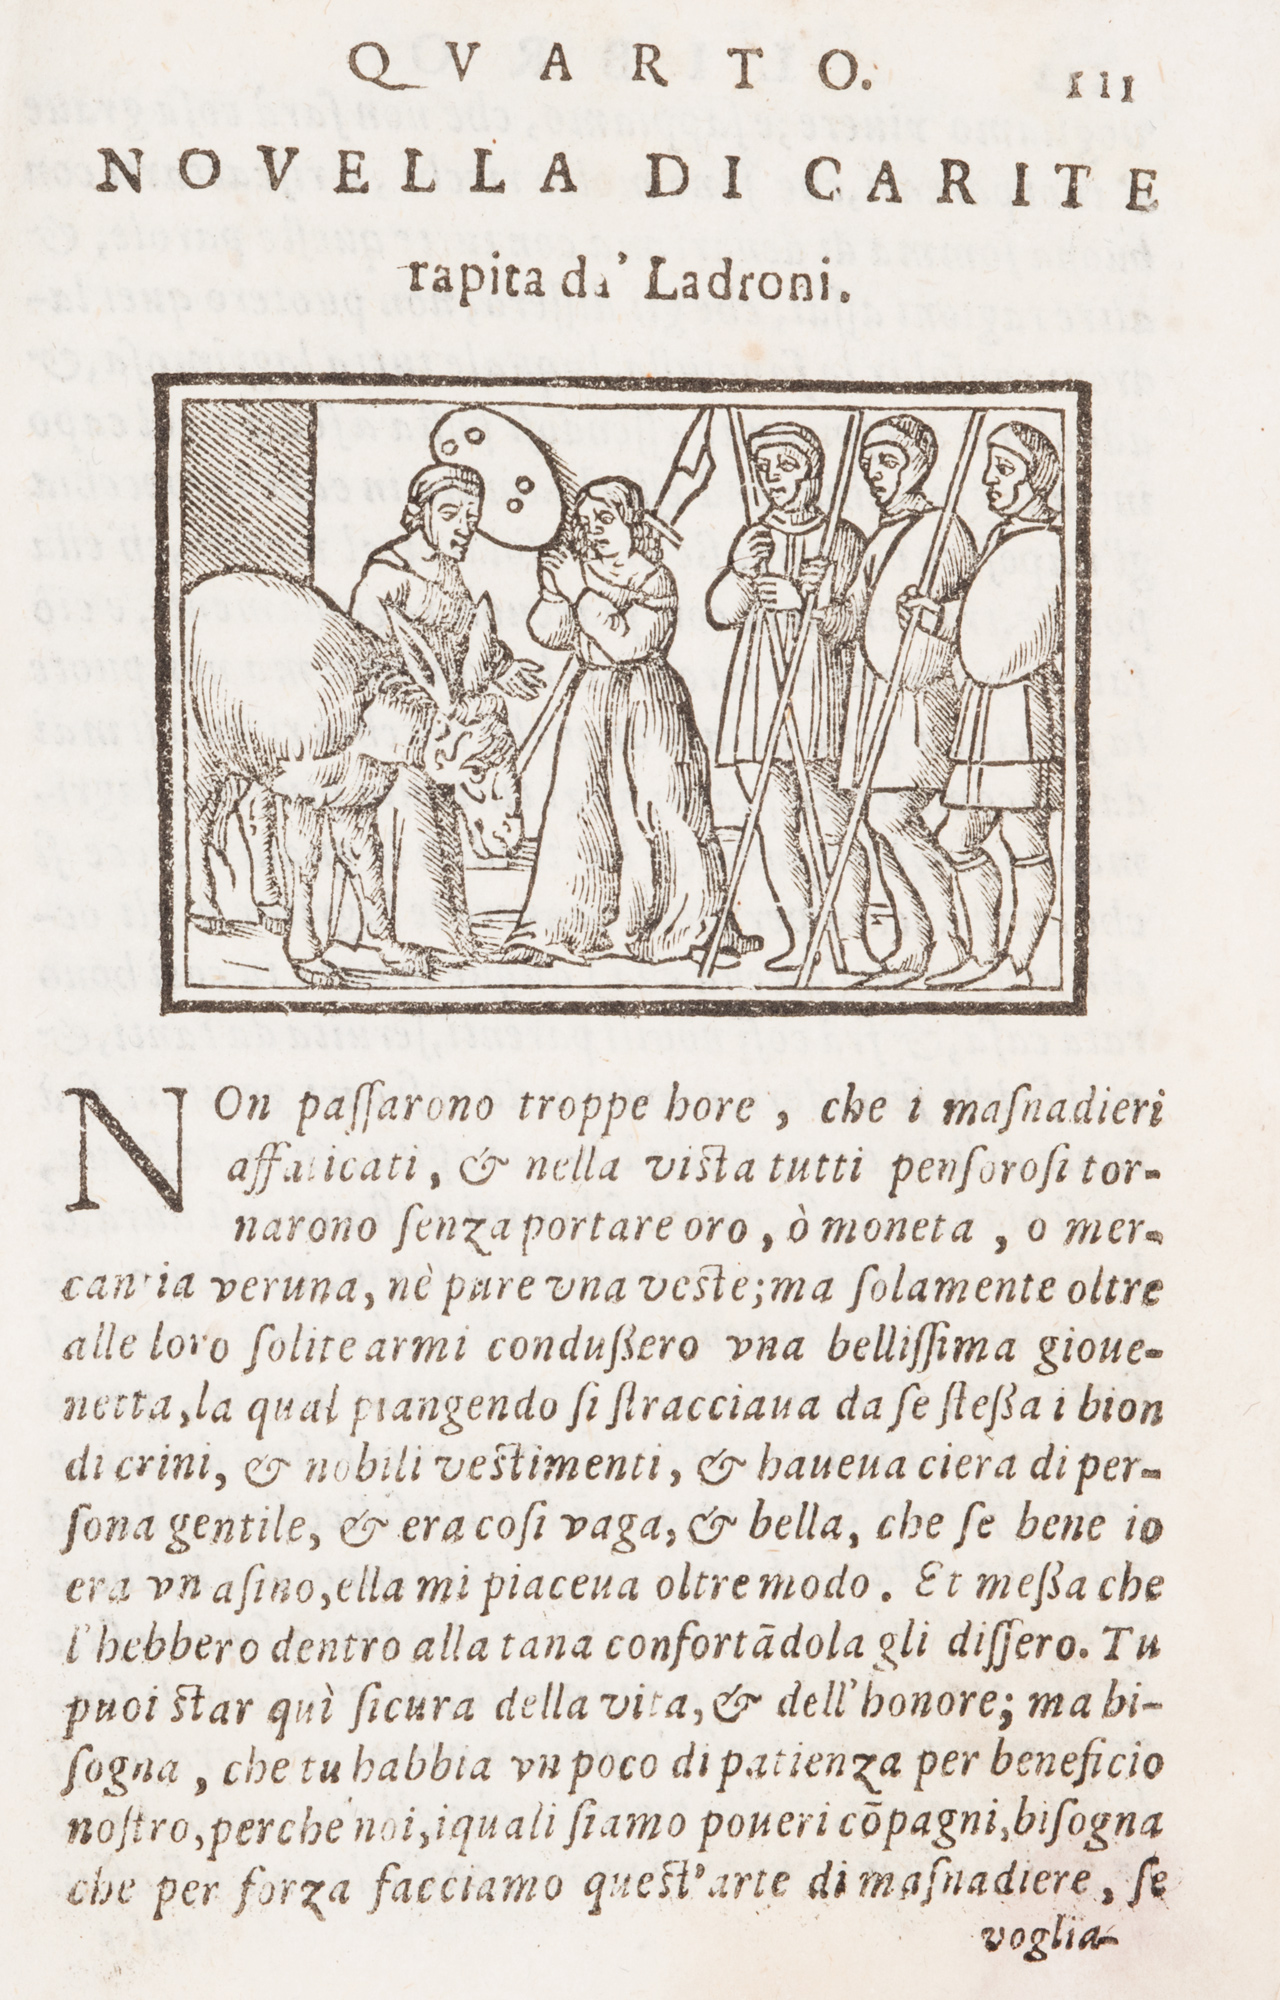 QVARTO. 111
NOVELLA DI CARITE
rapita da' Ladroni.
NOn paſſarono troppe hore, che i maſnadieri
affaticati, & nella viſta tutti penſoroſi tor-
narono ſenza portare oro, ò moneta, o mer-
cantia veruna, nè pure vna veſte; ma ſolamente oltre
alle loro ſolite armi conduſſero vna belliſſima gioue-
netta, la qual piangendo ſi ſtracciaua da ſe ſteſſa i bion
di crini, & nobili veſtimenti, & haueua ciera di per-
ſona gentile, & era coſi vaga, & bella, che ſe bene io
era vn aſino, ella mi piaceua oltre modo. Et meſſa che
l'hebbero dentro alla tana confortãdola gli diſſero. Tu
puoi ſtar quì ſicura della vita, & dell'honore; ma bi-
ſogna, che tu habbia vn poco di patienza per beneficio
noſtro, perche noi, iquali ſiamo poueri cõpagni, biſogna
che per forza facciamo queſt'arte di maſnadiere, ſe
voglia-